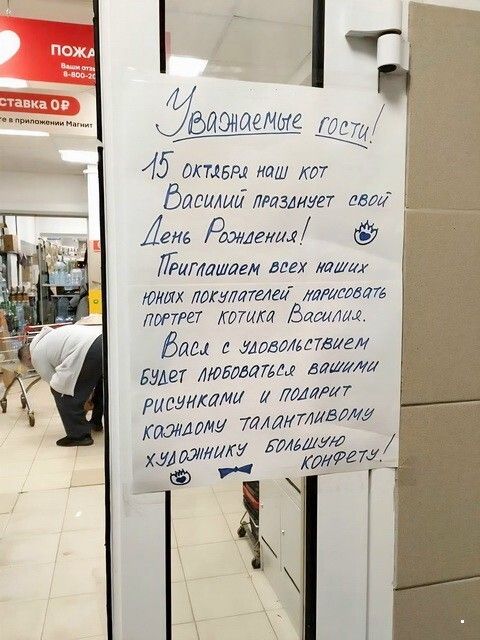 ПОЖА
Ваши отз
8-800-20
ставка 0₽
те в приложении Магнит
Уважаемые гости!
15 октября наш кот
Василий празднует свой
День Рождения!
Приглашаем всех наших
юных покупателей нарисовать
портрет котика Василия.
Вася с удовольствием
будет любоваться вашими
рисунками и подарит
каждому талантливому
художнику большую
конфету!